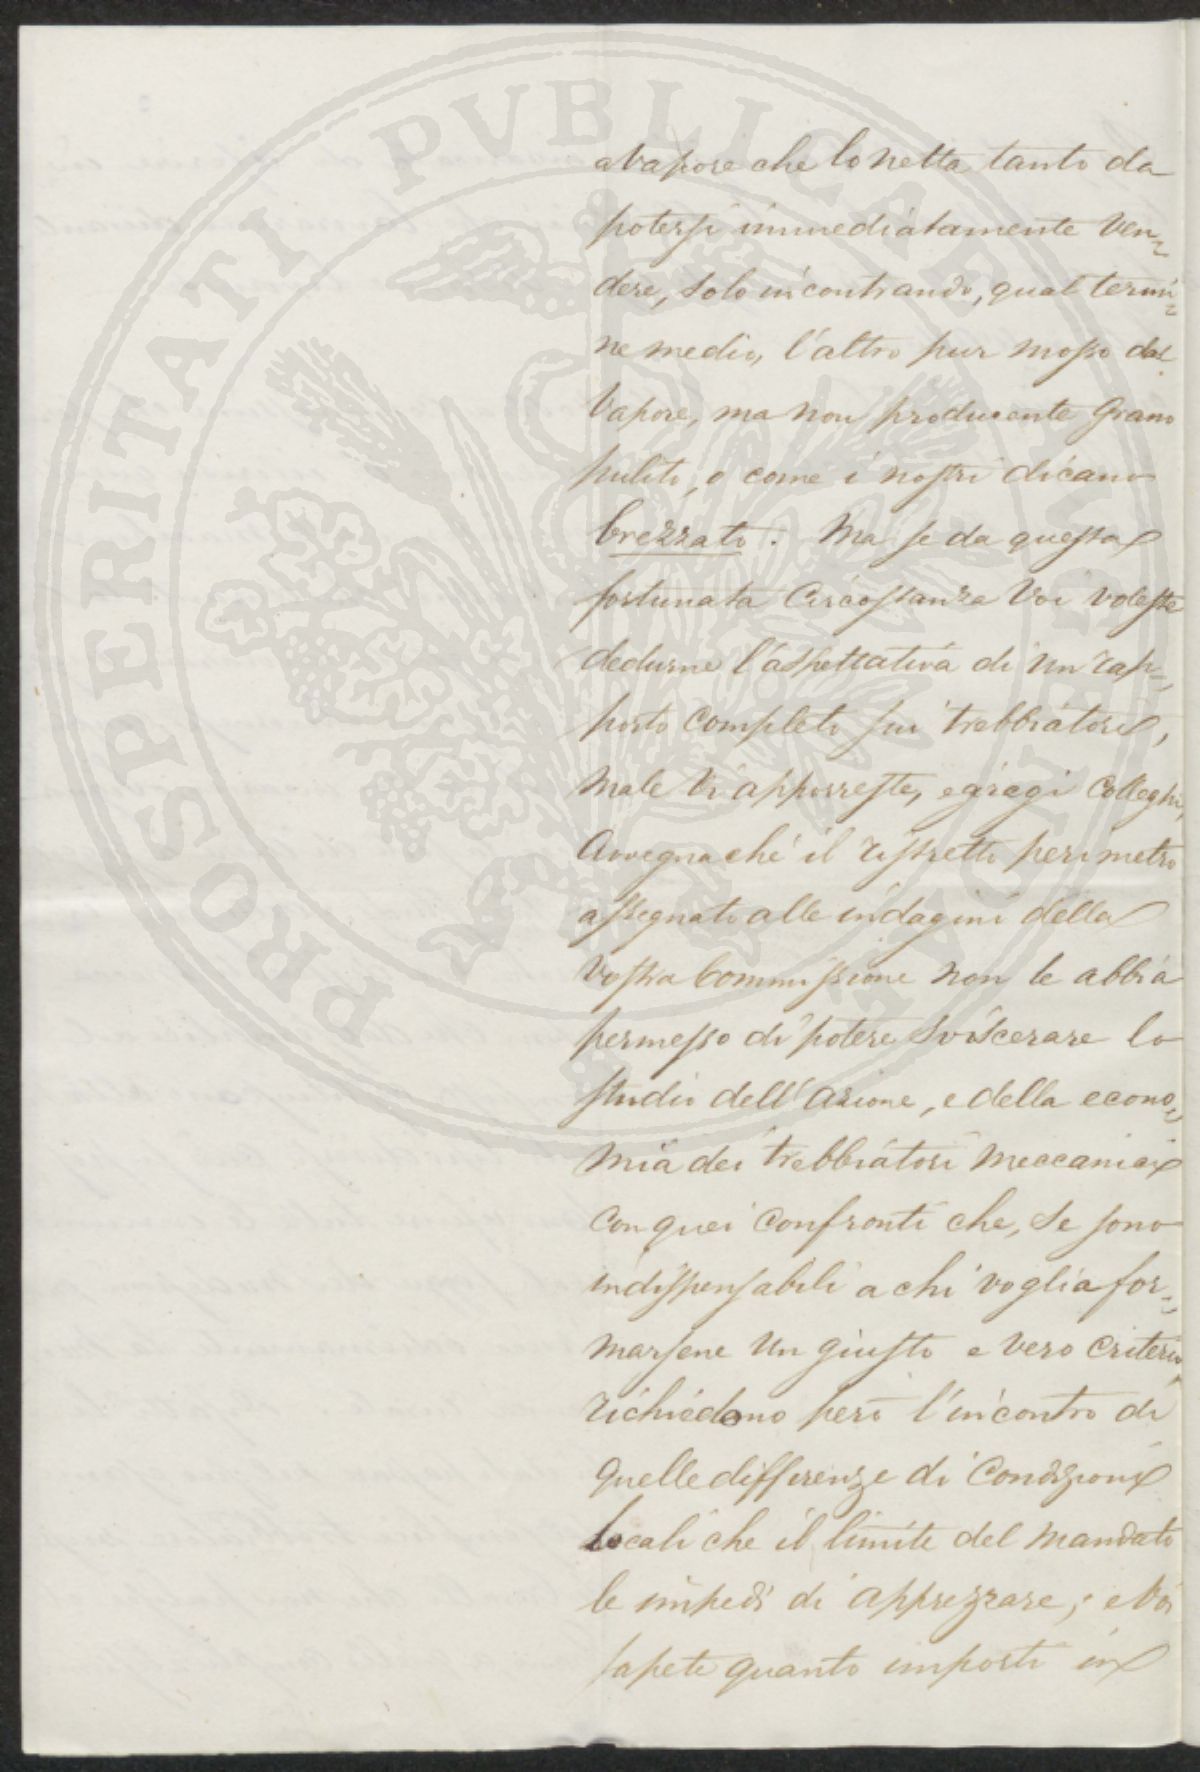 PROSPERITATI PVBLICAE AVGENDAE
a Vapore che lo netta tanto da
potersi immediatamente Ven=
dere, solo incontrando, qual termi=
ne medio, l'altro pur mosso dal
Vapore, ma non producente Grano
pulito, o come i nostri dicano
brezzato. Ma se da questa
fortunata Circostanza Voi voleste
dedurne l'aspettativa di un rap=
porto Completo sui trebbiatori,
male Vi apporreste, egregi Colleghi,
Avvegnachè il ristretto perimetro
assegnato alle indagini della
Vostra Commissione non le abbia
permesso di potere sviscerare lo
studio dell'Azione, e della econo=
mia dei trebbiatori Meccanici
con quei Confronti che, se sono
indispensabili a chi voglia for=
marsene un giusto e vero Criterio,
richiedono però l'incontro di
quelle differenze di Condizioni
locali che il limite del Mandato
le impedì di apprezzare; e Voi
sapete quanto importi in